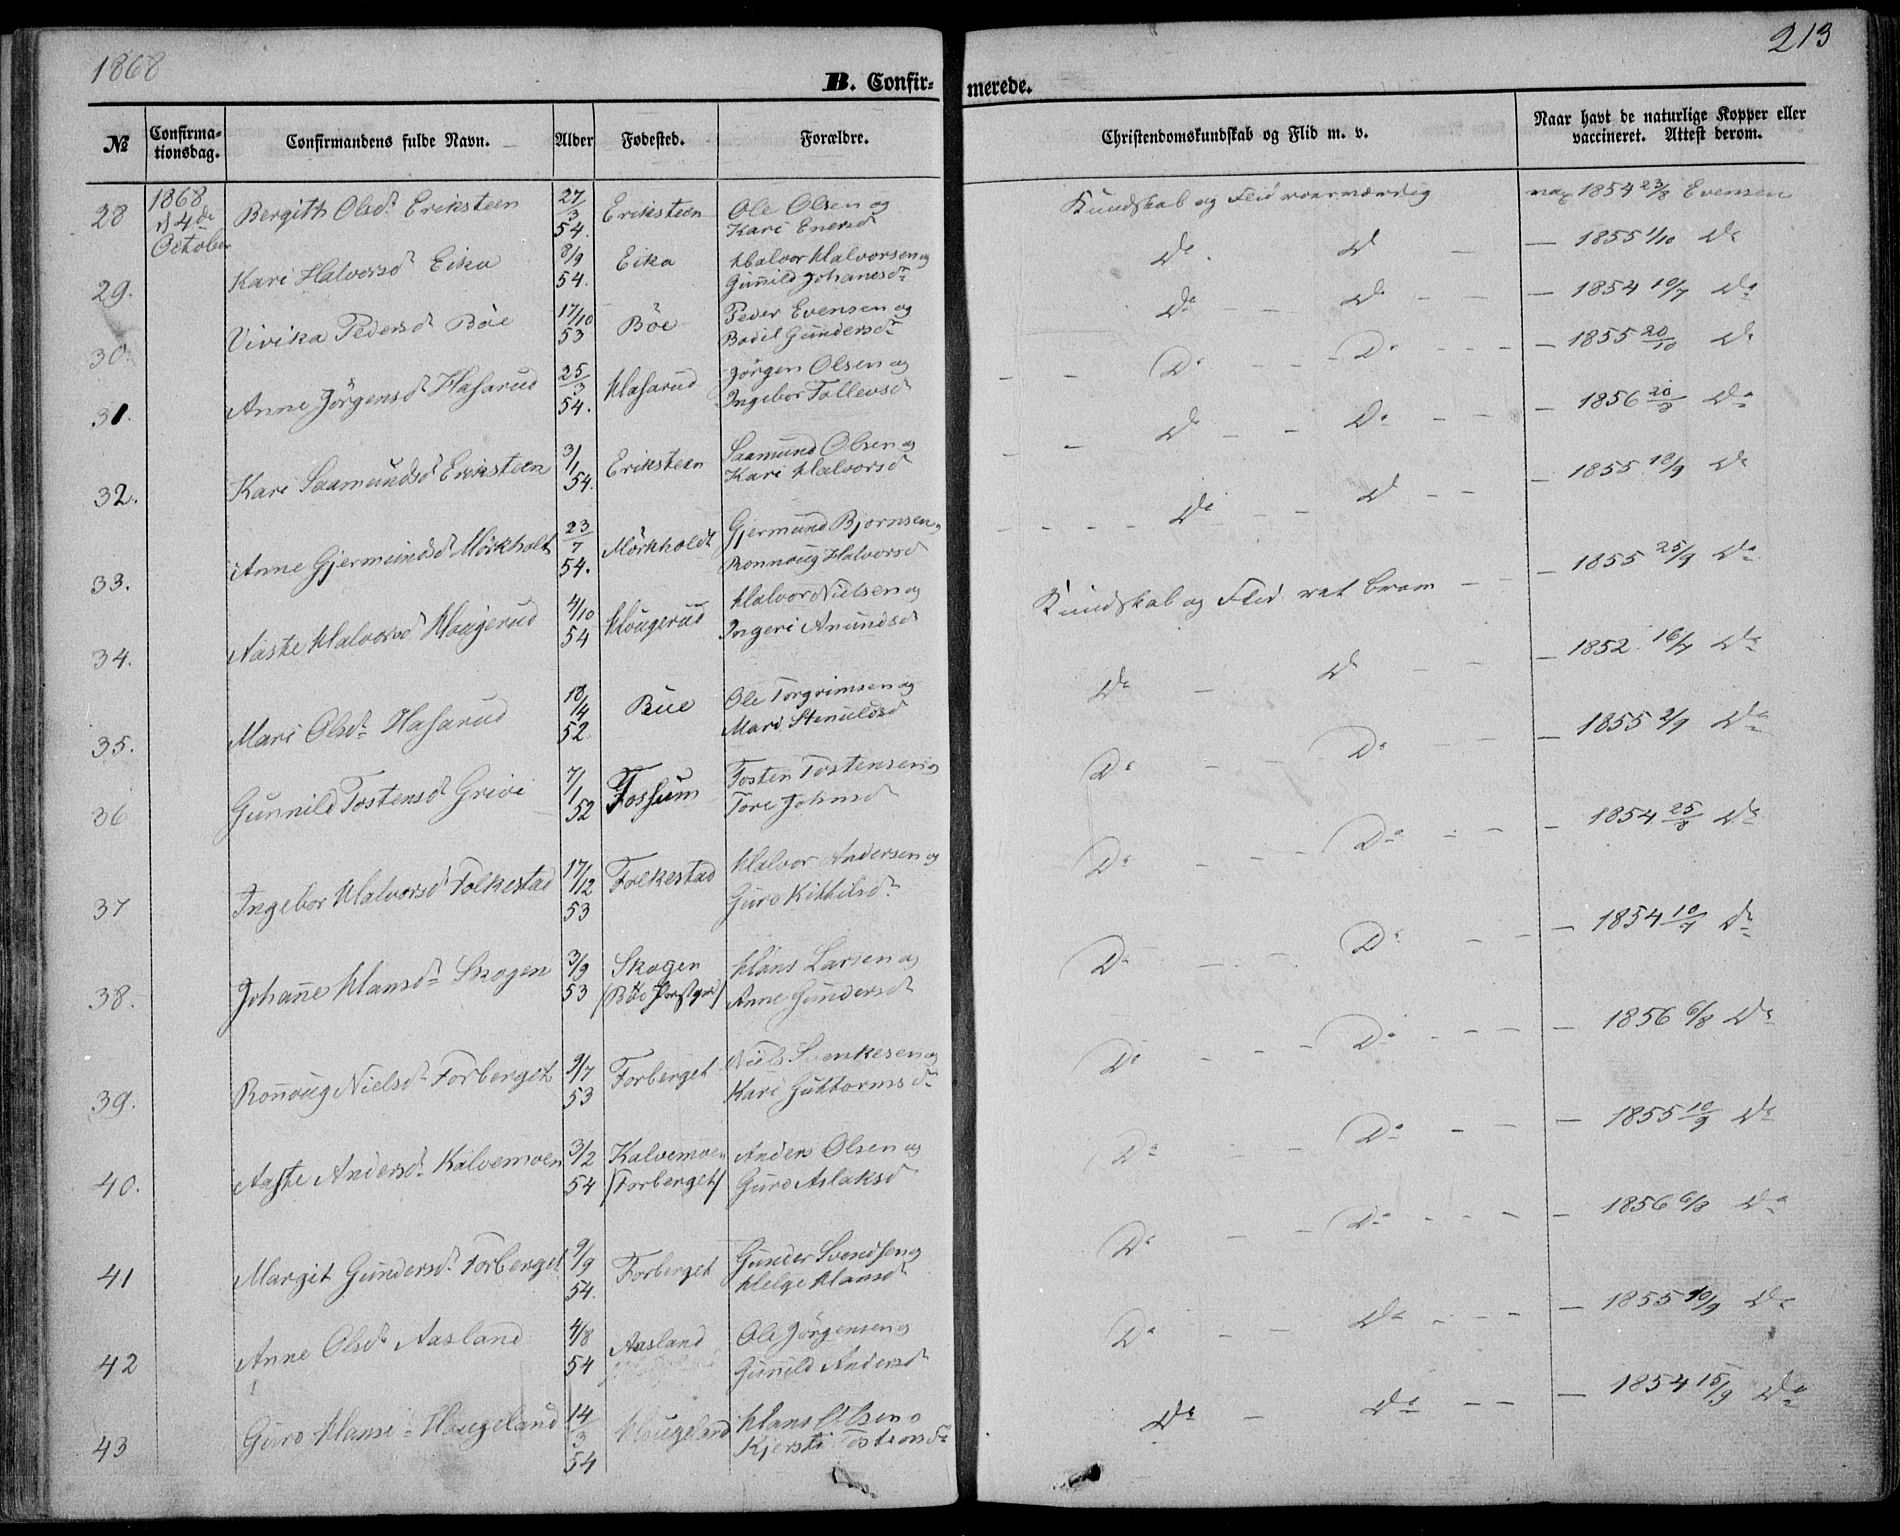 1868
213
B. Confirmerede.
№ Confirmationsdag. Confirmandens fulde Navn. Alder Fødested. Forældre. Christendomskundskab og Flid m. v. Naar havt de naturlige Kopper eller vaccineret. Attest derom.
28 1868 d 4de October Bergith Olsd. Eriksteen 27/3 54. Eriksteen Ole Olsen og Kari Enersd Kundskab og Flid 1854 23/8 Evensen
29. Kari Halvorsd Eika 8/9 54. Eika Halvor Halvorsen og Gunild Johanesd. Do. D — — 1855 1/10 Do
30. Vivika Pedersd Böe 17/10 53 Böe Peder Evensen og Bodil Gundersd. Do — — Do — — — 1854 10/7 Do
31. Anne Jörgensd Hafarud 25/3 54. Hafarud Jörgen Olsen og Ingebor Tollevsd — — Do — — Do — — — — 1855 20/10 Do
32. Kari Saamundsd Eriksteen 3/1 54. Eriksteen Saamund Olsen og Kari Halvorsd — — Do — — Do — — — 1856 20/8 Do
33. Anne Gjermundsd Mörkholt 23/7 54. Mörkholdt Gjermund Björnsen og Ronnoug Halvorsd — — — — Do — — D — — — 1855 18/9 Do
34. Aaste Halvorsd Hougerud 4/10 54 Hougerud Halvor Nielsen og Ingeri Anundsd Kundskab og Flid ret bram — — — 1855 25/9 Do
35. Mari Olsd. Hafarud 18/4 52 Büe Ole Torgrimsen og Mari Stenuldsd Do — D — — — 1852 16/7 Do
36 Gunnild Tostensd Grivi 7/1 52 Fossum Tosten Tostensen og Tore Johnsd Do — — Do — — — 1855 2/9 Do
37 Ingebor Halvorsd Folkestad 17/12 53 Folkestad Halvor Andersen og Guro Kittilsd. Do — — — Do — — — 1854 25/8 Do
38. Johane Hansd. Skogen 3/9 53 Skogen Hans Larsen og Anne Gundersd Do — — — Do — — — 1854 10/7 Do
39. Ronoug Nielsd. Forberget 9/7 53 Forberget Niels Svenkesen og Kari Guttormsd. Do — — — Do — — — 1856 6/8 Do
40. Aaste Andersd. Kalvemoen 3/2 54 Kalvemoen (Forberget) Anders Olsen og Guro Aslaksd Do — — — Do — — — 1855 10/9 Do
41 Margit Gundersd. Forberget 9/9 54. Forberget Gunder Svendsen og Helge Hansd Do — — Do — — — — 1856 6/8 Do
42 Anne Olsd. Aasland 4/8 54 Aasland Ole Jörgensen og Gunild Andersd Do — — Do — — — — 1855 10/9 Do
43 Guro Hansd. Hougeland 14/3 54 Hougeland Hans Olsen o Kjersti Tostensd. Do — Do — — — 1854 15/9 Do